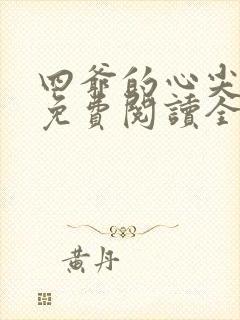 四爺的心尖
免費閱讀全
黃丹